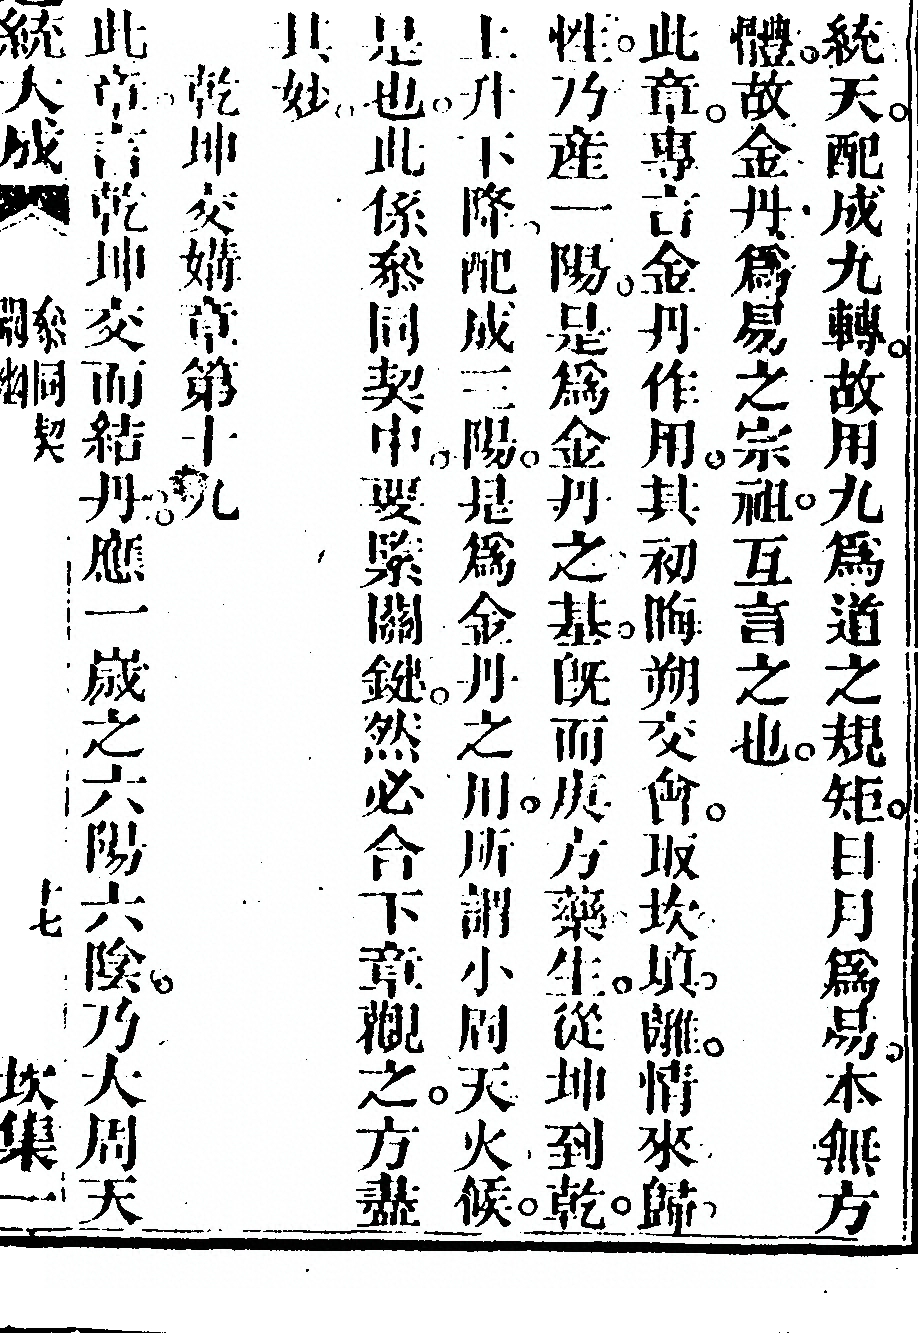 統天。配成九轉。故用九爲道之規矩。日月爲易。本無方
體。故金丹爲易之宗祖。互言之也。
此章。專言金丹作用。其初晦朔交會。取坎塡離。情來歸
性。乃產一陽。是爲金丹之基。旣而庚方藥生。從坤到乾。
上升下降。配成三陽。是爲金丹之用。所謂小周天火候。
是也。此係叅同契中。要緊關鍵。然必合下章觀之。方盡
其妙。
乾坤交媾章第十九
此章。言乾坤交而結丹。應一歲之六陽六陰。乃大周天
統大成
叅同契
闡幽
十七
坎集一